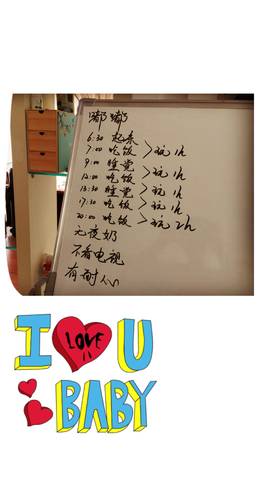 嘟嘟
6:30 起床
7:00 吃饭 >玩1h
9:00 睡觉
12:00 吃饭 >玩1h
13:30 睡觉 >玩1h
17:30 吃饭 >玩1h
20:00 吃饭 >玩2h
无夜奶
不看电视
有耐心
I U
LOVE
BABY